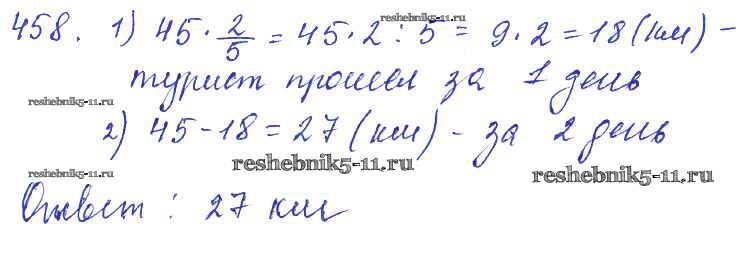 458. 1) 45 · 2/5 = 45 · 2 : 5 = 9 · 2 = 18 (км) –
reshebnik5-11.ru
турист прошел за 1 день
reshebnik5-11.ru
reshebnik5-11.ru
2) 45 - 18 = 27 (км) - за 2 день
reshebnik5-11.ru
reshebnik5-11.ru
reshebnik5-11.ru
Ответ: 27 км